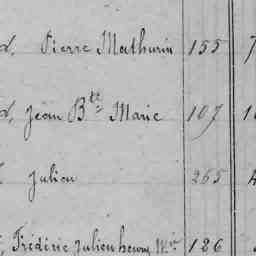 d, Pierre Mathurin 155 7
d, Jean Bte Marie 107 1
Julien 265
, Frédéric Julien henry Mie 126